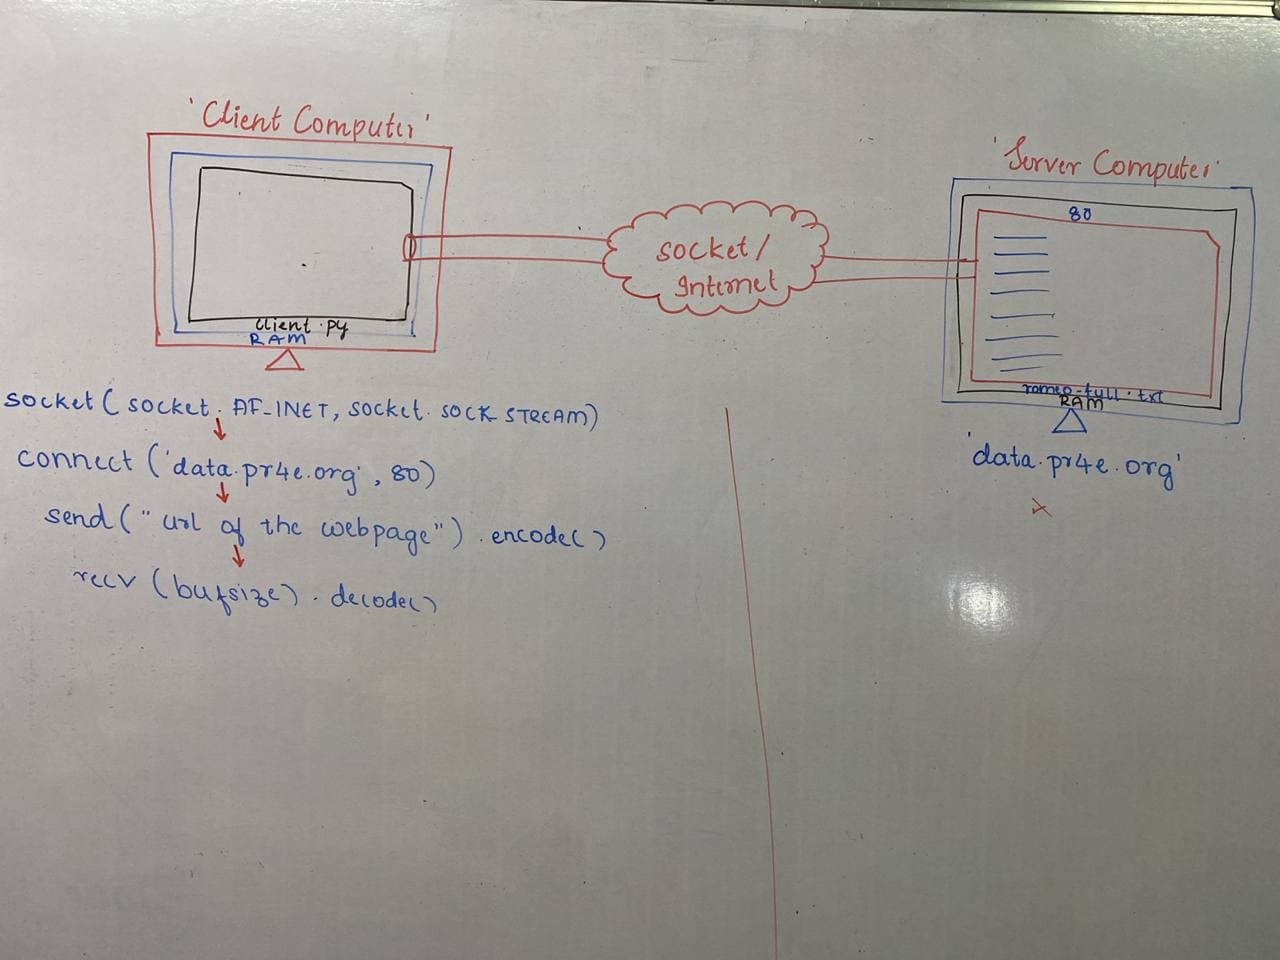 'Client Computer'
'Server Computer'
80
socket /
Internet
client.py
RAM
romeo-full.txt
RAM
'data.pr4e.org'
socket( socket. AF_INET, socket. SOCK STREAM)
↓
connect ('data.pr4e.org', 80)
↓
send(" url of the webpage") .encode()
↓
recv (bufsize). decode()
x